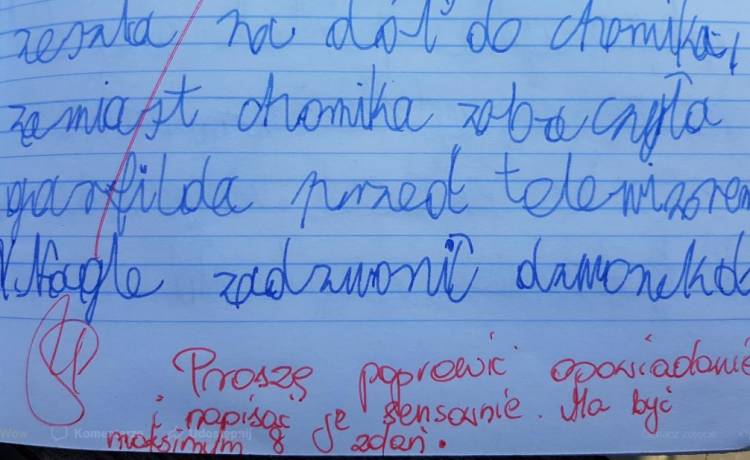 zeszła na dół do chomika,
zamiast chomika zobaczyła
garfilda przed telewizorem
Nagle zadzwonił dzwonek do
Proszę poprawić opowiadanie
i napisać je sensownie. Ma być
maksimum 8 zdań.
Wow Komentarz Udostępnij